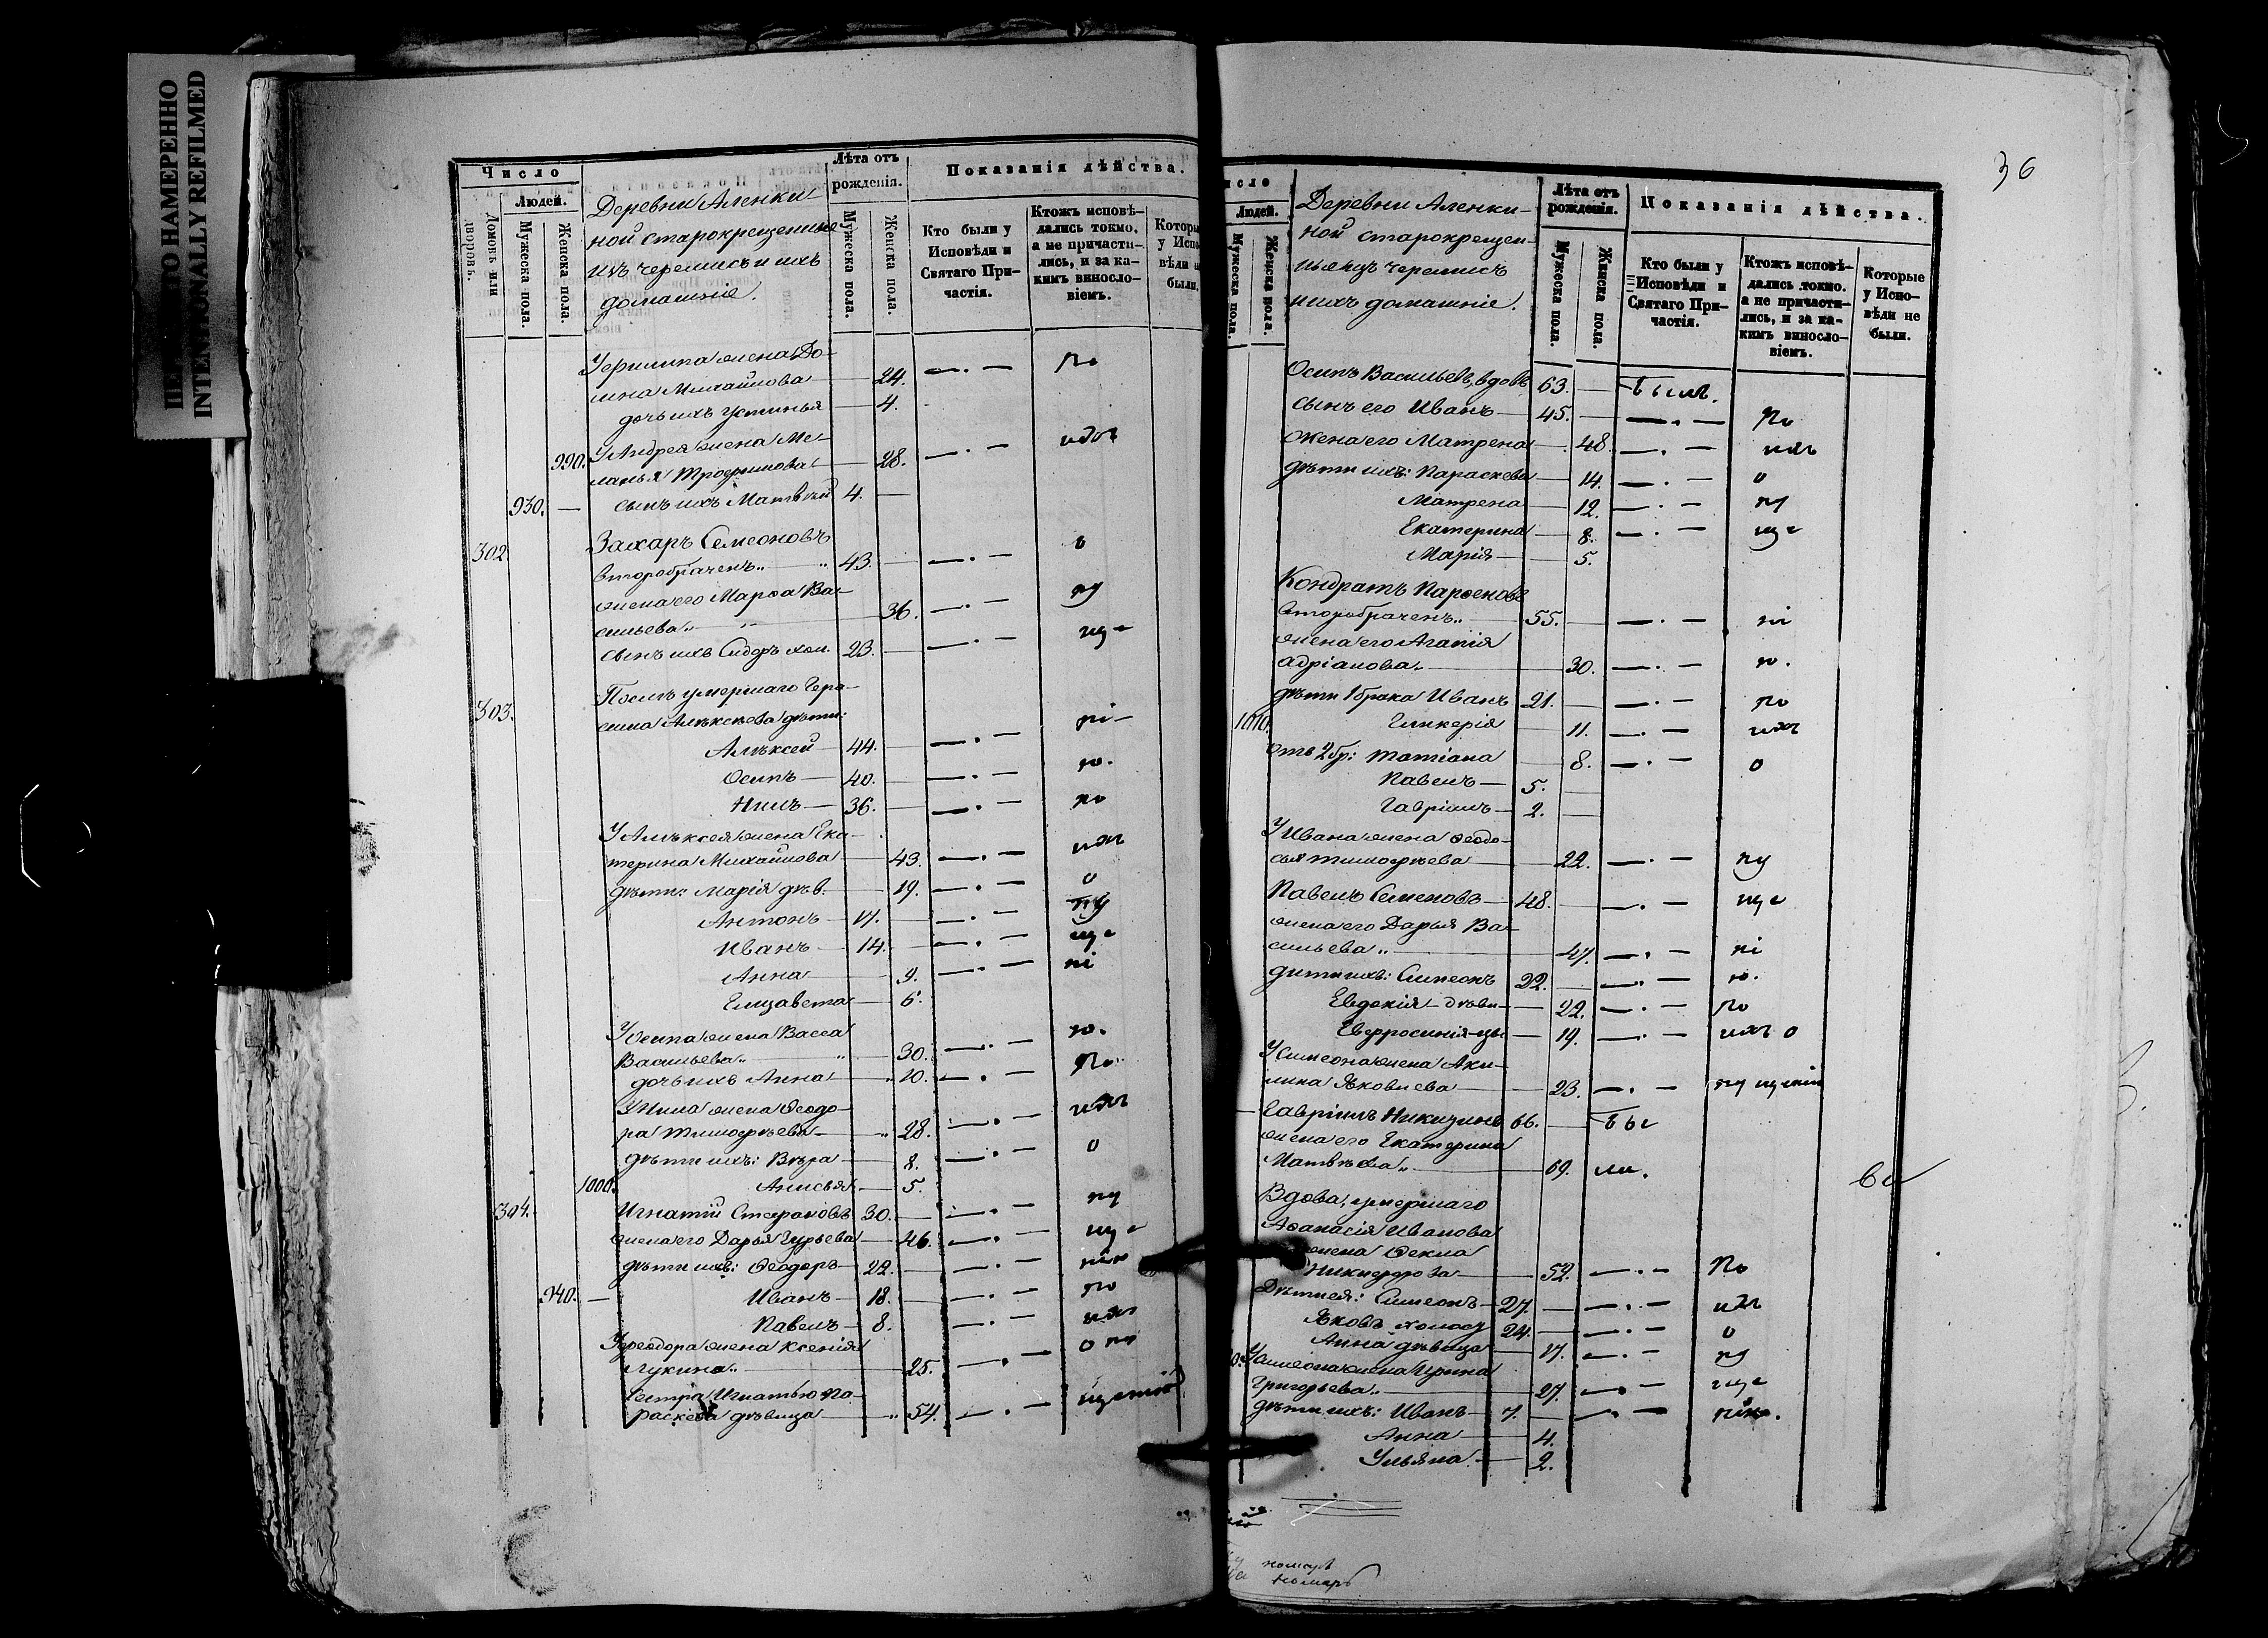 INTENTIONALLY REFILMED
Число
Людей.
Домовъ или дворовъ.
Мужеска пола.
Женска пола.
Деревни Аленки-
ной старокрещенные
ихъ черемисъ и ихъ
домашніе.
Лѣта отъ
рожденія.
Мужеска пола.
Женска пола.
Показанія дѣйства.
Кто были у
Исповѣди и
Святаго При-
частія.
Ктожъ исповѣ-
дались токмо,
а не причасти-
лись, и за ка-
кимъ виносло-
віемъ.
Которы
у Испо
вѣди н
были.
жена До-
мна Михайлова — 24. — по
дочь ихъ Устинья — 4.
990. У Андрея жена Ме-
ланья Трофимова — 28. —
930. — сынъ ихъ Матвѣй 4. —
302. Захаръ Семеоновъ
второбраченъ 43. — о
жена его Марѳа Ва-
сильева 36. — пу
сынъ ихъ Сидоръ хол. 23. — ще
303. Послѣ умершаго Гера-
сима Алексѣева дѣти:
Алексѣй — 44. — пі
Осипъ — 40. — ю.
Нилъ — 36. — по
У Алексѣя жена Ека-
терина Михайлова — 43. —
дѣти: Марія дѣв. — 19. — о
Антонъ — 17. — пу
Иванъ — 14. — ще
Анна — 9. — пі
Елизавета — 6.
У Осипа жена Васса
Васильева 30. — ю.
дочь ихъ Анна — 10. — по
У Нила жена Ѳеодо-
ра Тимофѣева — 28. —
дѣти ихъ: Вѣра — 8. — о
1000. Анисья — 5.
304. Игнатій Стефановъ 30. — пу
жена его Дарья Гурьева — 46. — ще
дѣти ихъ: Ѳеодоръ — 22. —
940. — Иванъ — 18. — по
Павелъ — 8. —
У Ѳеодора жена Ксенія
Лукина 25. — о пу
Сестра Игнатью Па-
раскева дѣвица — 54. —
36
исло
Людей.
Мужеска пола.
Женска пола.
Деревни Аленки-
ной старокрещен-
ныхъ черемисъ
и ихъ домашніе.
Лѣта отъ
рожденія.
Мужеска пола.
Жинска пола.
Показанія дѣйства.
Кто были у
Исповѣди и
Святаго При-
частія.
Ктожъ исповѣ-
дались токмо.
а не причасти-
лись, и за ка-
кимъ виносло-
віемъ.
Которые
у Испо-
вѣди не
были.
Осипъ Васильевъ, вдовъ 63. — были.
сынъ его Иванъ — 45. — по
жена его Матрена — 48. —
дѣти ихъ: Параскева — 14. — о
Матрена — 12. — пу
Екатерина — 8. — ще
Марія — 5.
Кондратъ Парѳеновъ
второбраченъ 55. — пі
жена его Агапія
Адріанова 30. — ю.
дѣти 1 брака Иванъ 21. — по
1010. Гликерія 11. —
отъ 2 бр: Татіана 8. — о
Павелъ — 5. —
Гавріилъ — 2. —
У Ивана жена Ѳеодо-
сья Тимофѣева — 22. — пу
Павелъ Семеновъ — 48. — ще
жена его Дарья Ва-
сильева 47. — пі
дѣти ихъ: Симеонъ 22. — ю.
Евдокія — дѣви- 22. — по
Евфросинія — цы — 19. — о
У Симеона жена Аки-
лина Яковлева — 23. —
— Гавріилъ Никизинъ 66. — бы
жена его Екатерина
Матвѣева 69. ли.
Вдова, умершаго
Аѳанасія Иванова
жена Ѳекла
Никифорова — 52. — по
Дѣти ея: Симеонъ — 27. —
Яковъ холост 24. — о
Анна дѣвица — 17. — пу
У Симеона жена Ирина
Григорьева 27. — ще
дѣти ихъ: Иванъ — 7. —
Анна — 4.
Ульяна — 2.